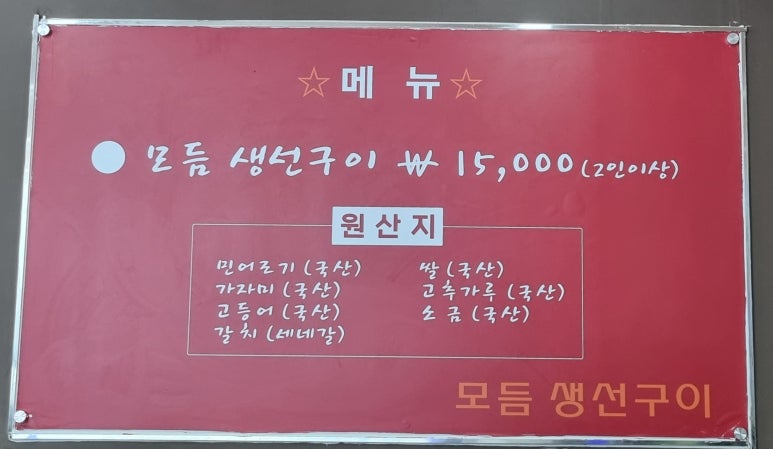 ☆메 뉴☆
● 모듬 생선구이 ₩ 15,000 (2인이상)
원산지
민어조기 (국산) 쌀 (국산)
가자미 (국산) 고추가루 (국산)
고등어 (국산) 소 금 (국산)
갈 치 (세네갈)
모듬 생선구이